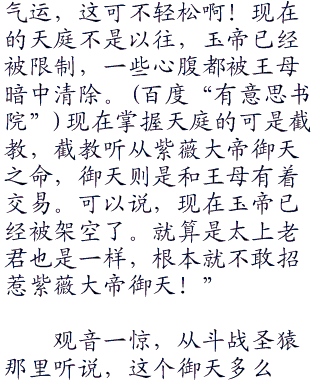 气运，这可不轻松啊！现在
的天庭不是以往，玉帝已经
被限制，一些心腹都被王母
暗中清除。(百度“有意思书
院”)现在掌握天庭的可是截
教，截教听从紫薇大帝御天
之命，御天则是和王母有着
交易。可以说，现在玉帝已
经被架空了。就算是太上老
君也是一样，根本就不敢招
惹紫薇大帝御天！”
观音一惊，从斗战圣猿
那里听说，这个御天多么